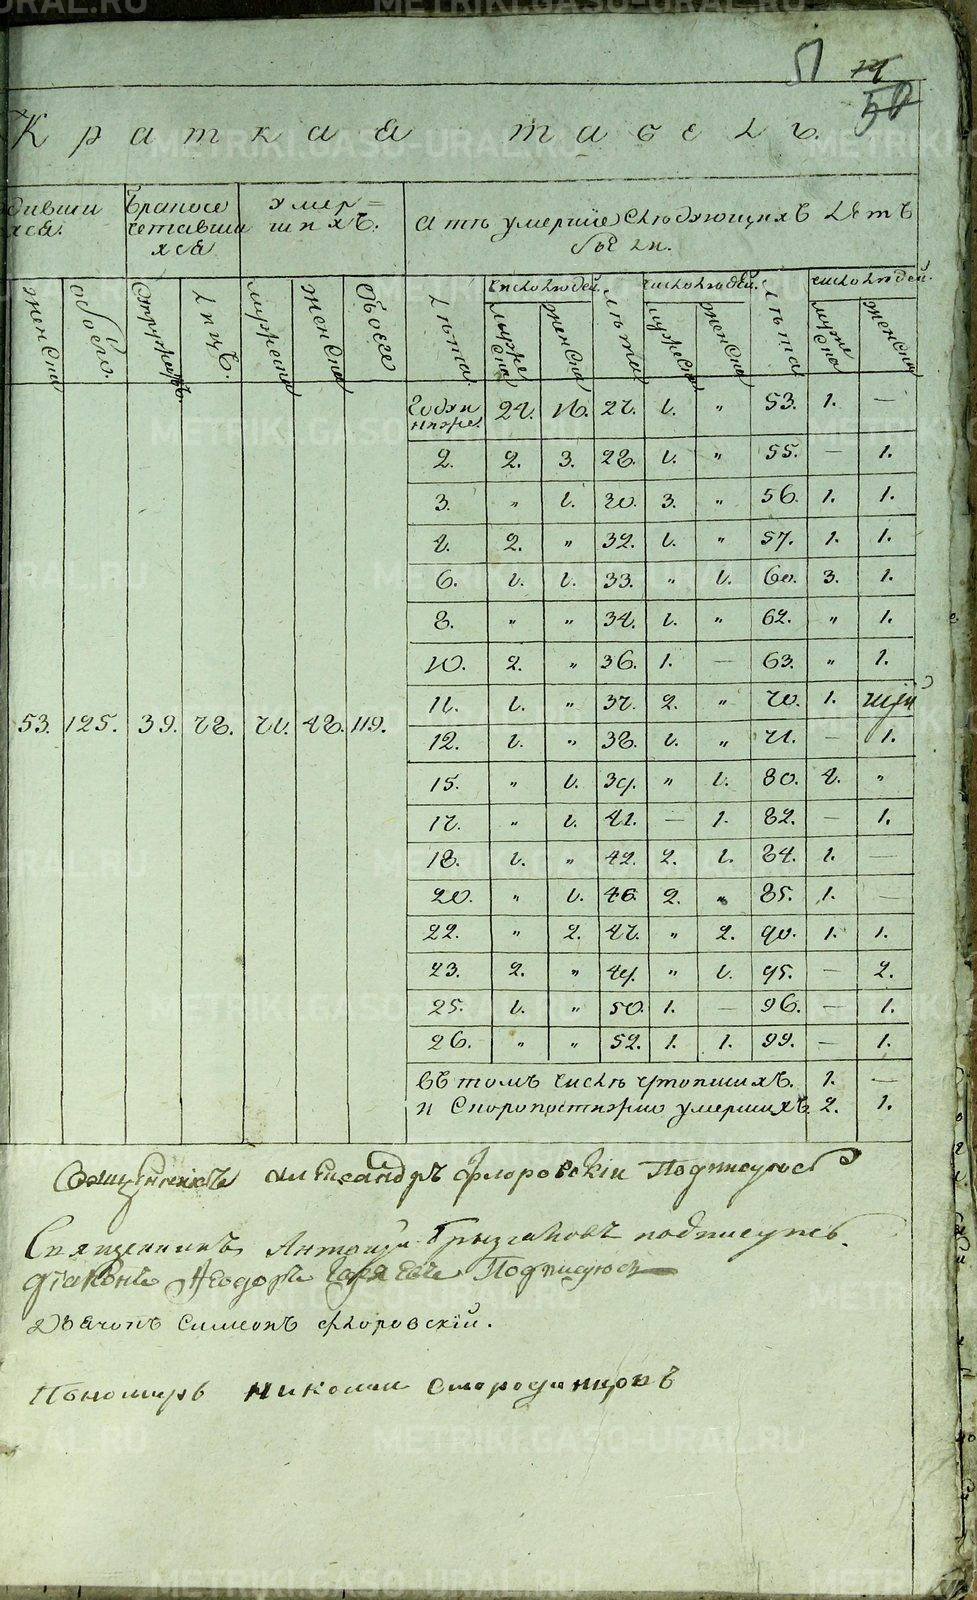 51 50
Краткая табель.
дивши
хся.
Бракосо
четавши
хся
умер=
шихъ.
а тѣ умершіе слѣдующихъ лѣтъ
были.
женска
обоего.
Супружествъ.
Лицъ.
мужеска
женска
Обоего
Лѣта.
число людей.
мужеска
женска
лѣта
число людей.
мужеска
женска
лѣта
число людей.
мужеска
женска
Года и
ниже. 24. 16. 27. 1. " 53. 1. —
2. 2. 3. 28. 1. " 55. — 1.
3. " 1. 30. 3. " 56. 1. 1.
4. 2. " 32. 1. " 57. 1. 1.
6. 1. 1. 33. " 1. 60. 3. 1.
8. " " 34. 1. " 62. " 1.
10. 2. " 36. 1. — 63. " 1.
11. 1. " 37. 2. " 70. 1.
53. 125. 39. 78. 71. 48. 119.
12. 1. " 38. 1. " 71. — 1.
15. " 1. 39. " 1. 80. 4. "
17. " 1. 41. — 1. 82. — 1.
18. 1. " 42. 2. 1. 84. 1. —
20. " 1. 46. 2. " 85. 1. —
22. " 2. 47. " 2. 90. 1. 1.
23. 2. " 49. " 1. 95. — 2.
25. 1. " 50. 1. — 96. — 1.
26. " " 52. 1. 1. 99. — 1.
въ томъ числѣ утопшихъ. 1. —
и скоропостижно умершихъ 2. 1.
Священникъ Александръ Флоровскіи Подписуюсь
Священникъ Антоній подписуюсь.
діаконъ Ѳеодоръ Подписуюсь
Дьячокъ Симеонъ Флоровскій.
Пономарь Николаи Смородинцовъ
METRIKI.GASO-URAL.RU